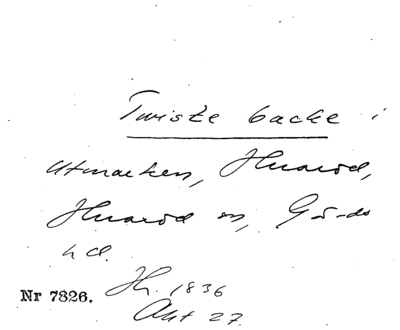 Twiste backe i
utmarken, Huaröd,
Huaröd sn, Gärds
hd.
Nr 7826. Hs. 1836
Akt 27.